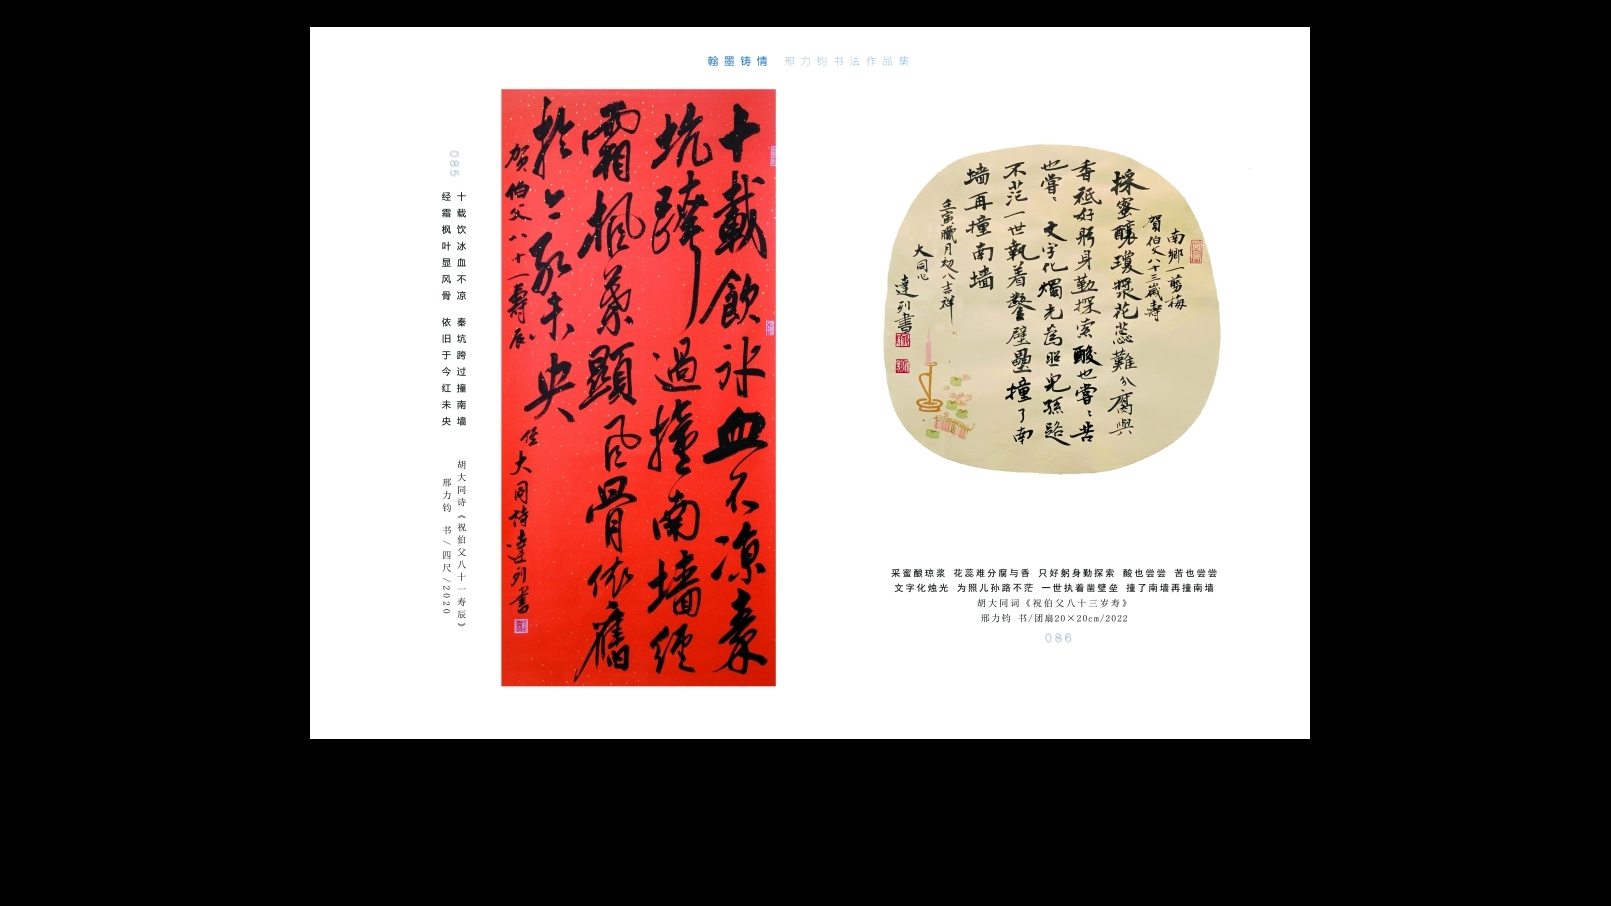 翰墨铸情 邢力钧书法作品集
085
十载饮冰血不凉 秦坑跨过撞南墙
经霜枫叶显风骨 依旧于今红未央
胡大同诗《祝伯父八十一寿辰》
邢力钧 书/四尺/2020
十載飲冰血不凉秦
坑跨過撞南墙經
霜楓葉顯風骨依舊
於今紅未央
賀伯父八十一壽辰
侄大同詩達列書
南鄉一剪梅
賀伯父八十三歲壽
採蜜釀瓊漿花蕊難分腐與
香祗好躬身勤探索酸也嘗嘗苦
也嘗嘗文字化燭光為照兒孫路
不茫一世執着鑿壁壘撞了南
墙再撞南墙
壬寅臘月初八吉祥
大同心
達列書
采蜜酿琼浆 花蕊难分腐与香 只好躬身勤探索 酸也尝尝 苦也尝尝
文字化烛光 为照儿孙路不茫 一世执着凿壁垒 撞了南墙再撞南墙
胡大同词《祝伯父八十三岁寿》
邢力钧 书/团扇20×20cm/2022
086